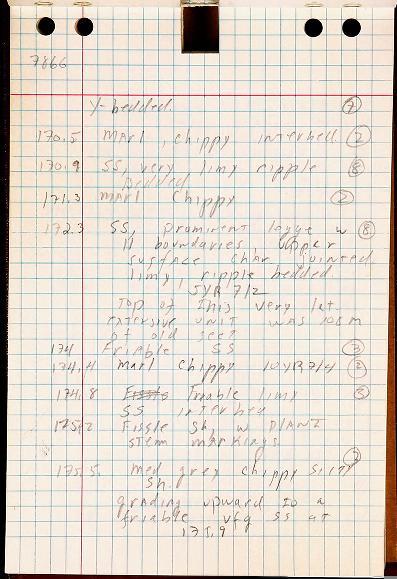 7866
X-bedded. 7
170.5 MArl, chippy interbed 2
170.9 SS, very limy ripple 8
Bedded
171.3 marl chippy 2
172.3 SS, prominent w 8
11 boundaries, upper
surface char jointed
limy, ripple bedded
5YR 7/2
Top of This very lat.
extensive unit was 108 m
of old sect
174 Friable SS 3
174.4 Marl chippy 10YR7/4 2
174.8 Friable limy 3
SS interbed
175.2 Fissle Sh, w PLANT
stem markings
175.5 med grey chippy silty
Sh.
grading upward to a
friable vfg ss at
175.9